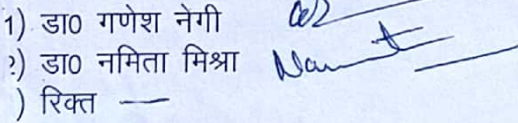 1) डा० गणेश नेगी
2) डा० नमिता मिश्रा
) रिक्त —